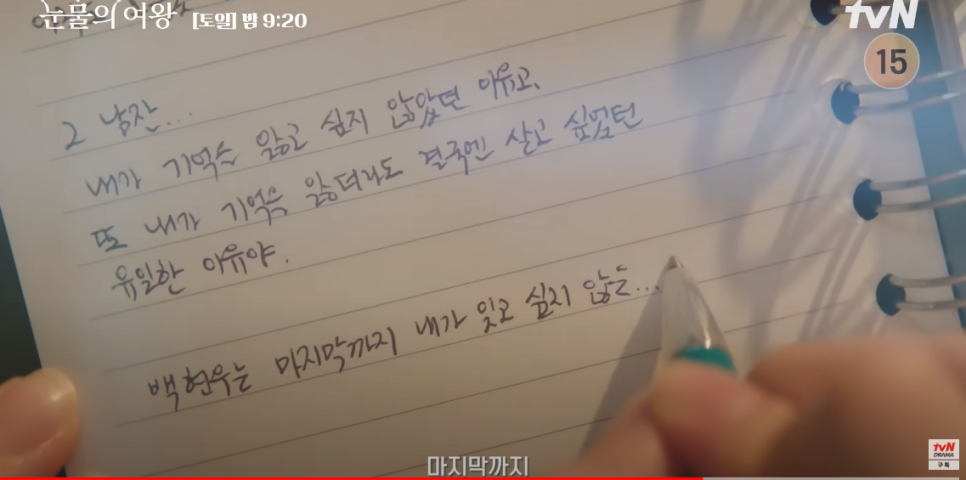 눈물의 여왕 [토일] 밤 9:20
tvN
15
그 남잔...
내가 기억을 잃고 싶지 않았던 이유고,
또 내가 기억을 잃더라도 결국엔 살고 싶었던
유일한 이유야.
백현우는 마지막까지 내가 잊고 싶지 않은...
마지막까지
tvN
DRAMA
구독